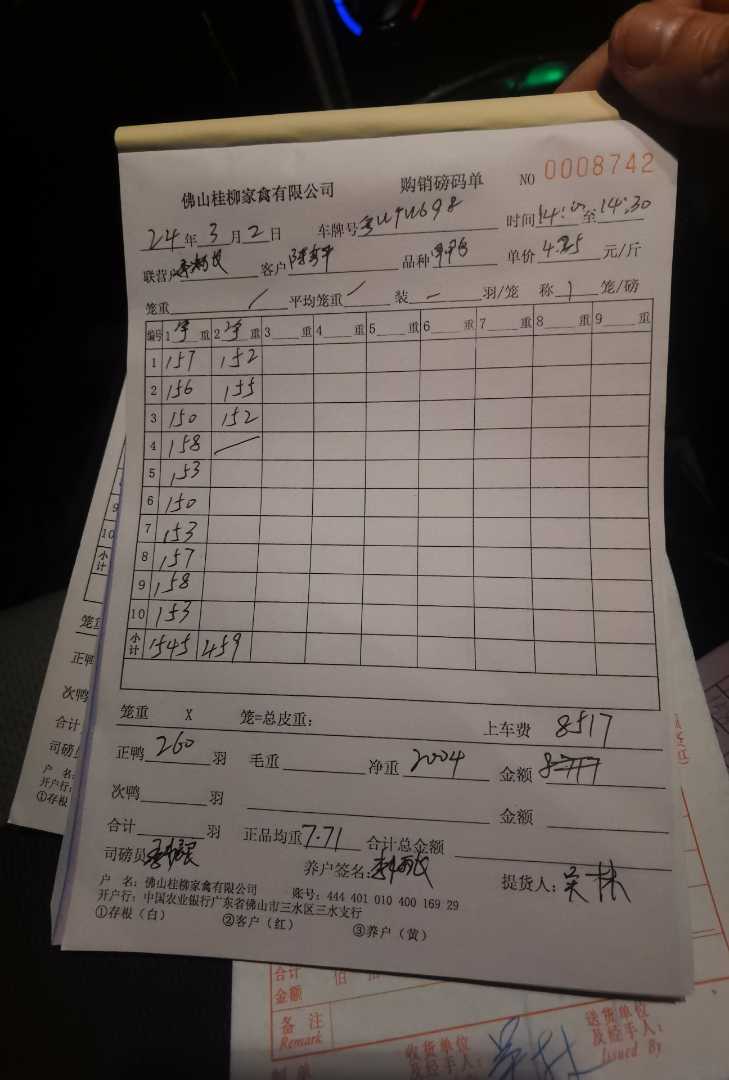 佛山桂柳家禽有限公司 购销磅码单 NO 0008742
24年3月2日 车牌号 时间14: 至14:30
联营户 客户 品种 单价4.25元/斤
笼重/ 平均笼重/ 装—羽/笼 称1笼/磅
编号 1 重 2 重 3 重 4 重 5 重 6 重 7 重 8 重 9 重
1 157 152
2 156 155
3 150 152
4 158 —
5 153
6 150
7 153
8 157
9 158
10 153
小计 1545 459
笼重 X 笼=总皮重: 上车费 8517
正鸭260羽 毛重 净重2004 金额
次鸭 羽 金额
合计 羽 正品均重7.71 合计总金额
司磅员 养户签名: 提货人:吴林
户 名:佛山桂柳家禽有限公司 账号:444 401 010 400 169 29
开户行:中国农业银行广东省佛山市三水区三水支行
①存根(白) ②客户(红) ③养户(黄)
9
10
小计
笼重
正鸭
次鸭
合计
司磅员
户 名:
开户行:
①存根
合计金额 佰
备注 Remark
收货单位及经手人:
送货单位及经手人:
Issued By